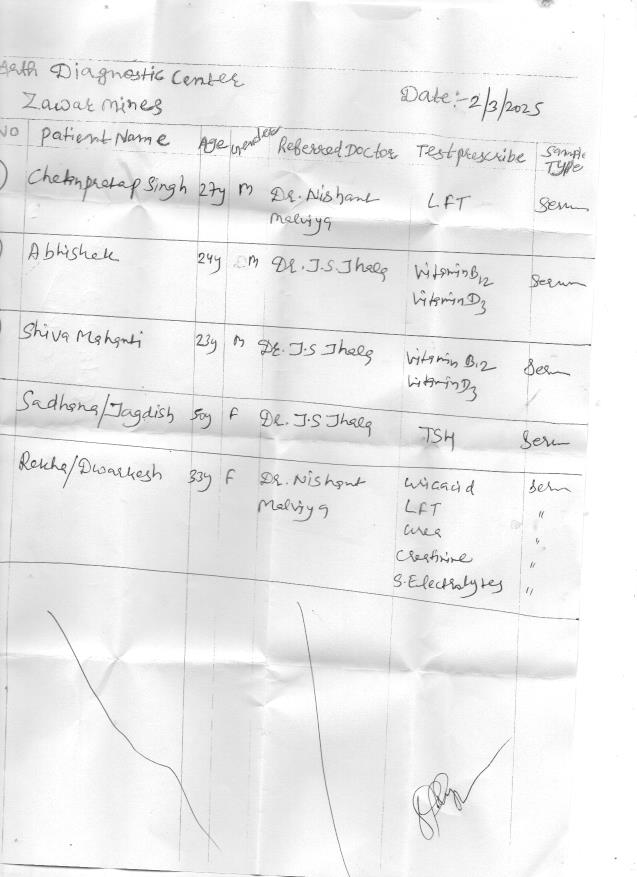 arth Diagnostic Center
Zawar mines
Date:- 2/3/2025
NO Patient Name Age Gender Referred Doctor Test prescribe Sample TYPE
Chetanpratap Singh 27y M Dr. Nishant Malviya LFT Serum
Abhishek 24y M Dr. J.S. Jhala Vitamin B12 Serum
Vitamin D3
Shiva Mahanti 23y M Dr. J.S Jhala Vitamin B12 Serum
Vitamin D3
Sadhana/Jagdish 50y F Dr. J.S Jhala TSH Serum
Rekha/Dwarkesh 33y F Dr. Nishant uricacid Serum
Malviya LFT "
urea "
Creatinine "
S. Electrolytes "